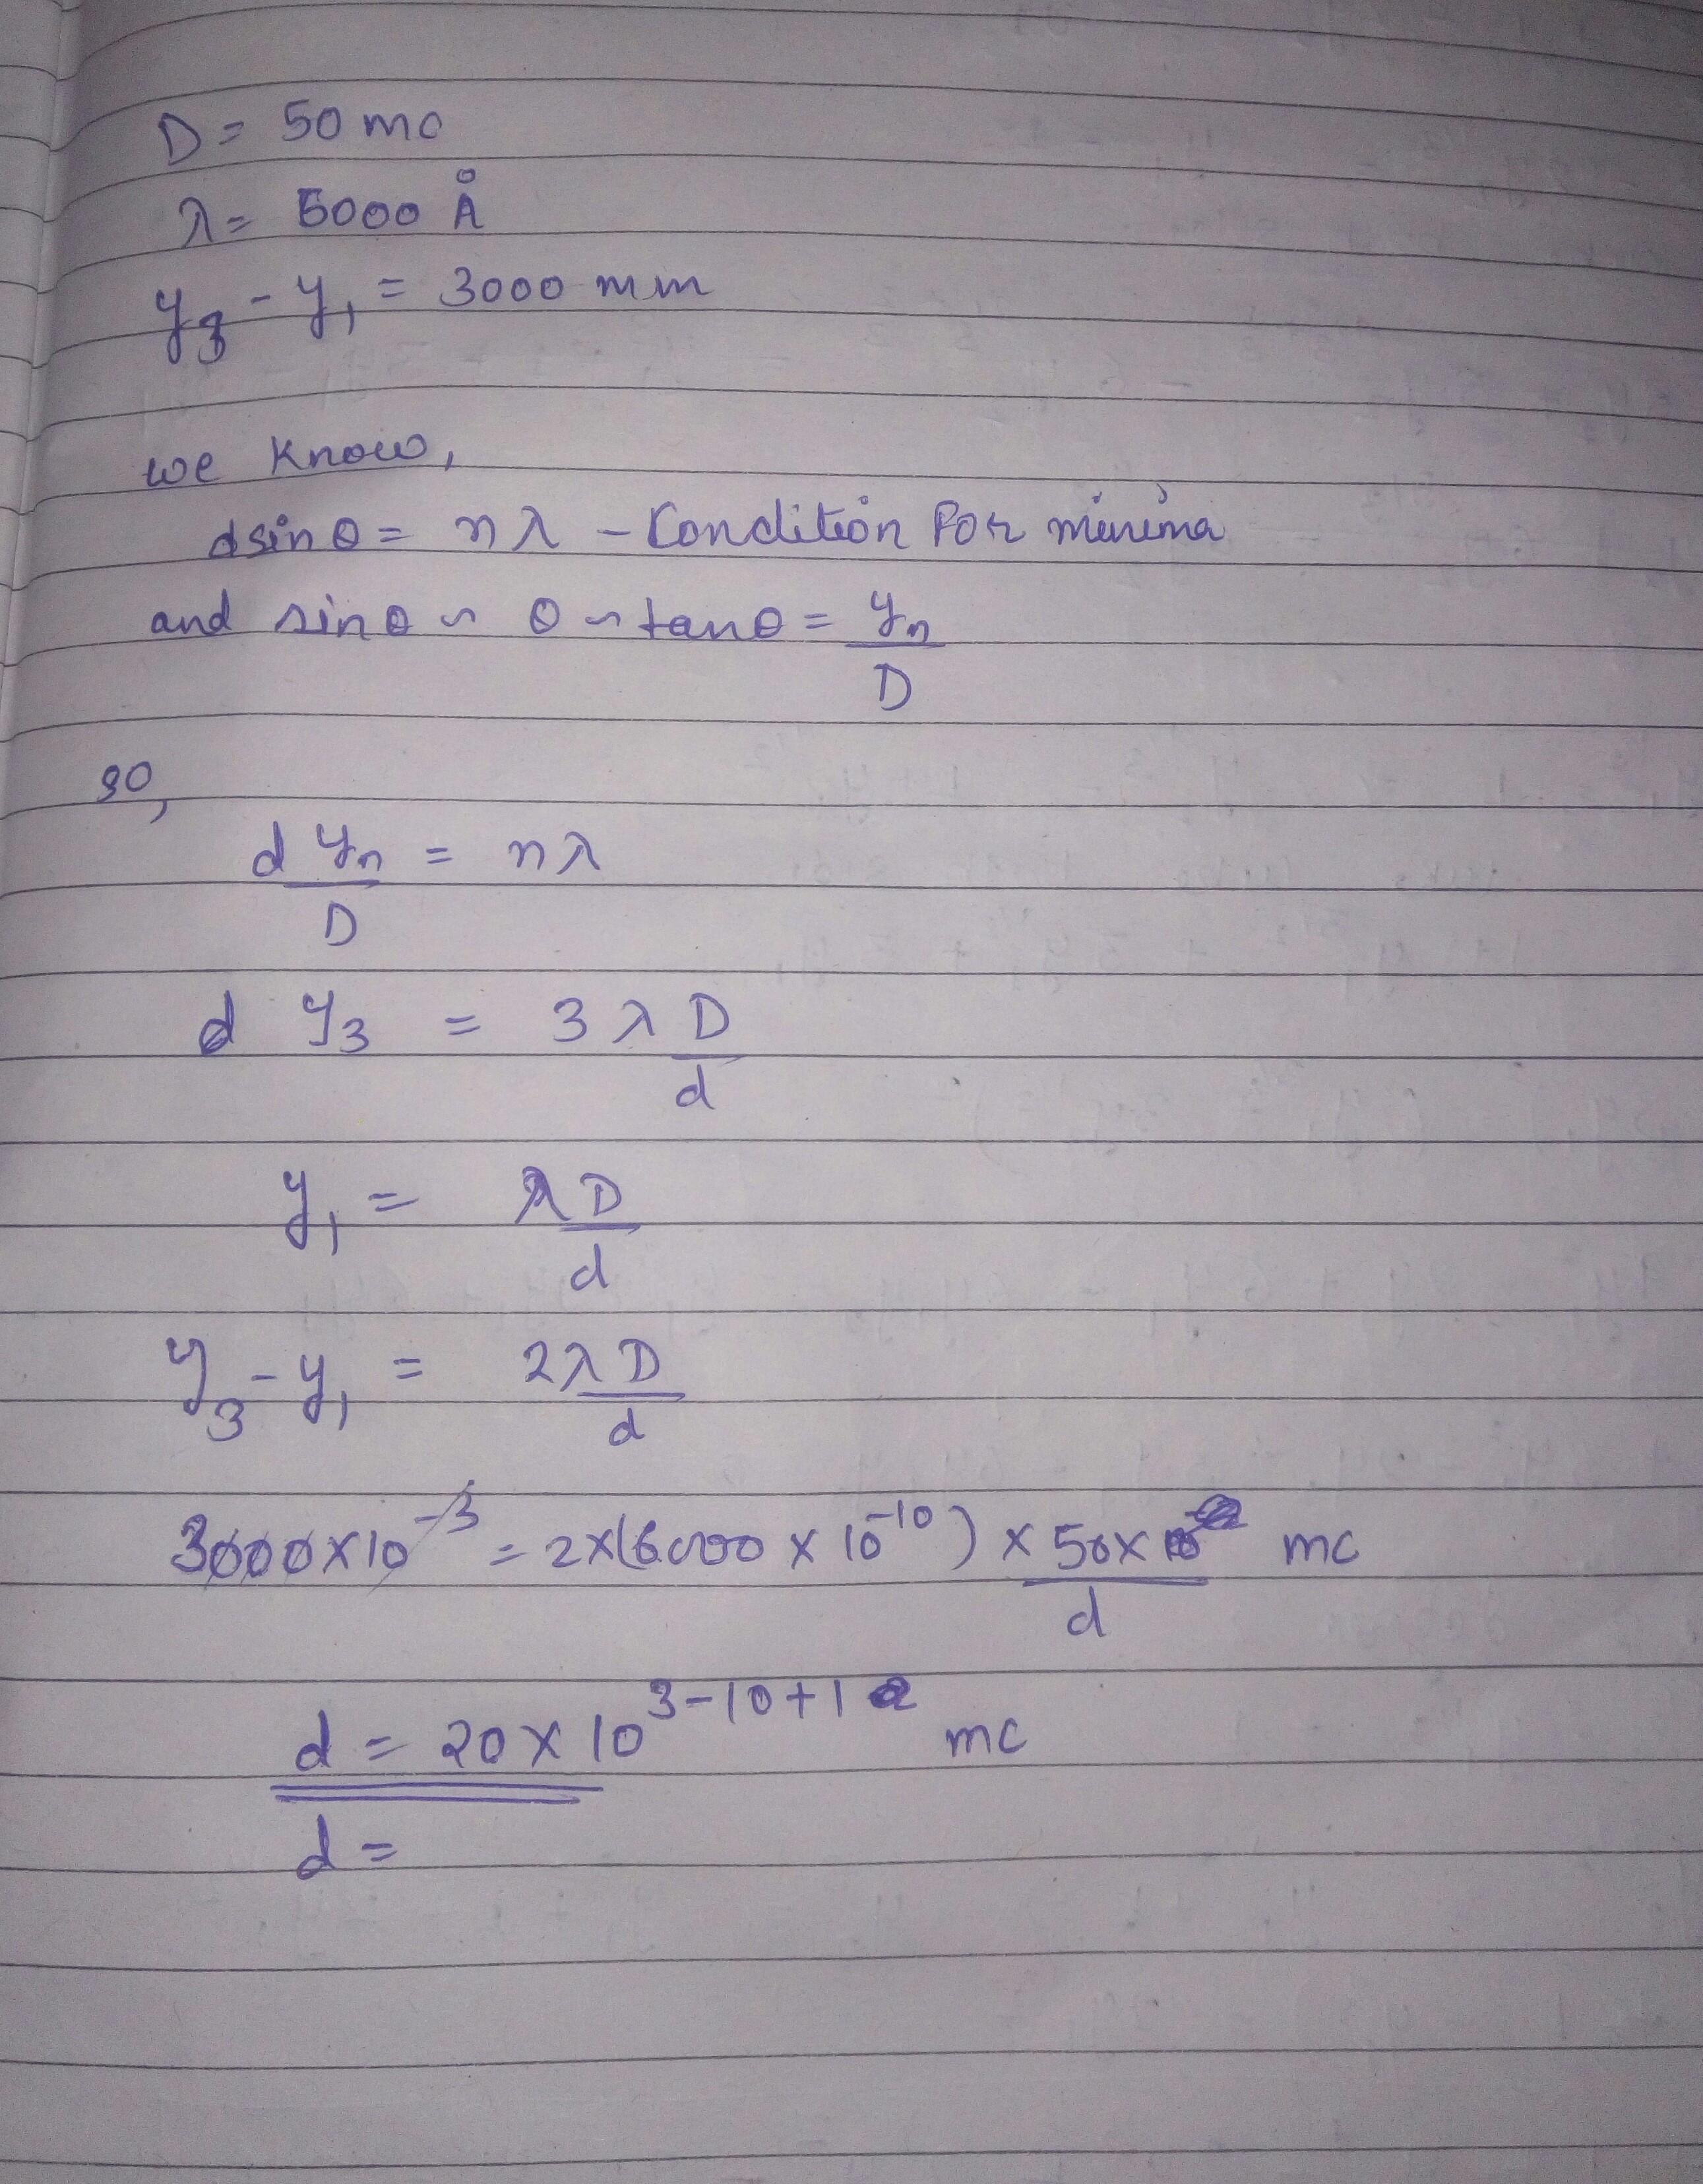 D = 50 mc
λ = 5000 Å
y₃ - y₁ = 3000 mm
we know,
dsinθ = nλ - Condition for minima
and sinθ ~ θ ~ tanθ = yₙ/D
so,
d yₙ/D = nλ
d y₃ = 3λD/d
y₁ = λD/d
y₃ - y₁ = 2λD/d
3000×10⁻³ = 2×(6000 × 10⁻¹⁰) × 50×10/d mc
d = 20 × 10³⁻¹⁰⁺¹ mc
d =